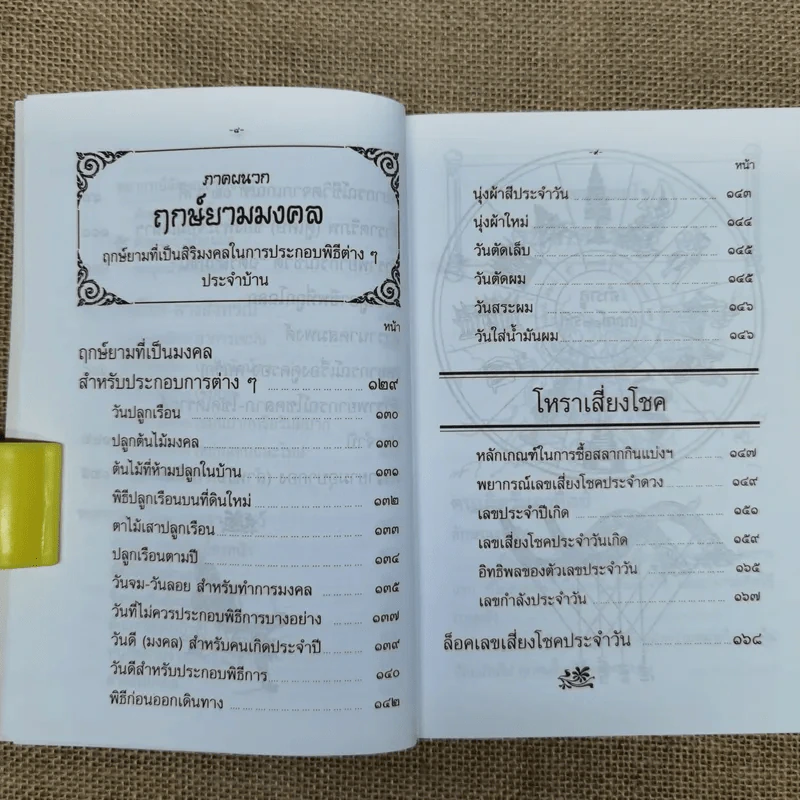 -๘-
ภาคผนวก
ฤกษ์ยามมงคล
ฤกษ์ยามที่เป็นสิริมงคลในการประกอบพิธีต่าง ๆ
ประจำบ้าน
หน้า
ฤกษ์ยามที่เป็นมงคล
สำหรับประกอบการต่าง ๆ ๑๒๙
วันปลูกเรือน ๑๓๐
ปลูกต้นไม้มงคล ๑๓๐
ต้นไม้ที่ห้ามปลูกในบ้าน ๑๓๑
พิธีปลูกเรือนบนที่ดินใหม่ ๑๓๒
ตาไม้เสาปลูกเรือน ๑๓๓
ปลูกเรือนตามปี ๑๓๔
วันจม-วันลอย สำหรับทำการมงคล ๑๓๕
วันที่ไม่ควรประกอบพิธีการบางอย่าง ๑๓๗
วันดี (มงคล) สำหรับคนเกิดประจำปี ๑๓๙
วันดีสำหรับประกอบพิธีการ ๑๔๐
พิธีก่อนออกเดินทาง ๑๔๒
-๙-
หน้า
นุ่งผ้าสีประจำวัน ๑๔๓
นุ่งผ้าใหม่ ๑๔๔
วันตัดเล็บ ๑๔๕
วันตัดผม ๑๔๕
วันสระผม ๑๔๖
วันใส่น้ำมันผม ๑๔๖
โหราเสี่ยงโชค
หลักเกณฑ์ในการซื้อสลากกินแบ่งฯ ๑๔๗
พยากรณ์เลขเสี่ยงโชคประจำดวง ๑๔๙
เลขประจำปีเกิด ๑๕๑
เลขเสี่ยงโชคประจำวันเกิด ๑๕๙
อิทธิพลของตัวเลขประจำวัน ๑๖๕
เลขกำลังประจำวัน ๑๖๗
ล็อคเลขเสี่ยงโชคประจำวัน ๑๖๘